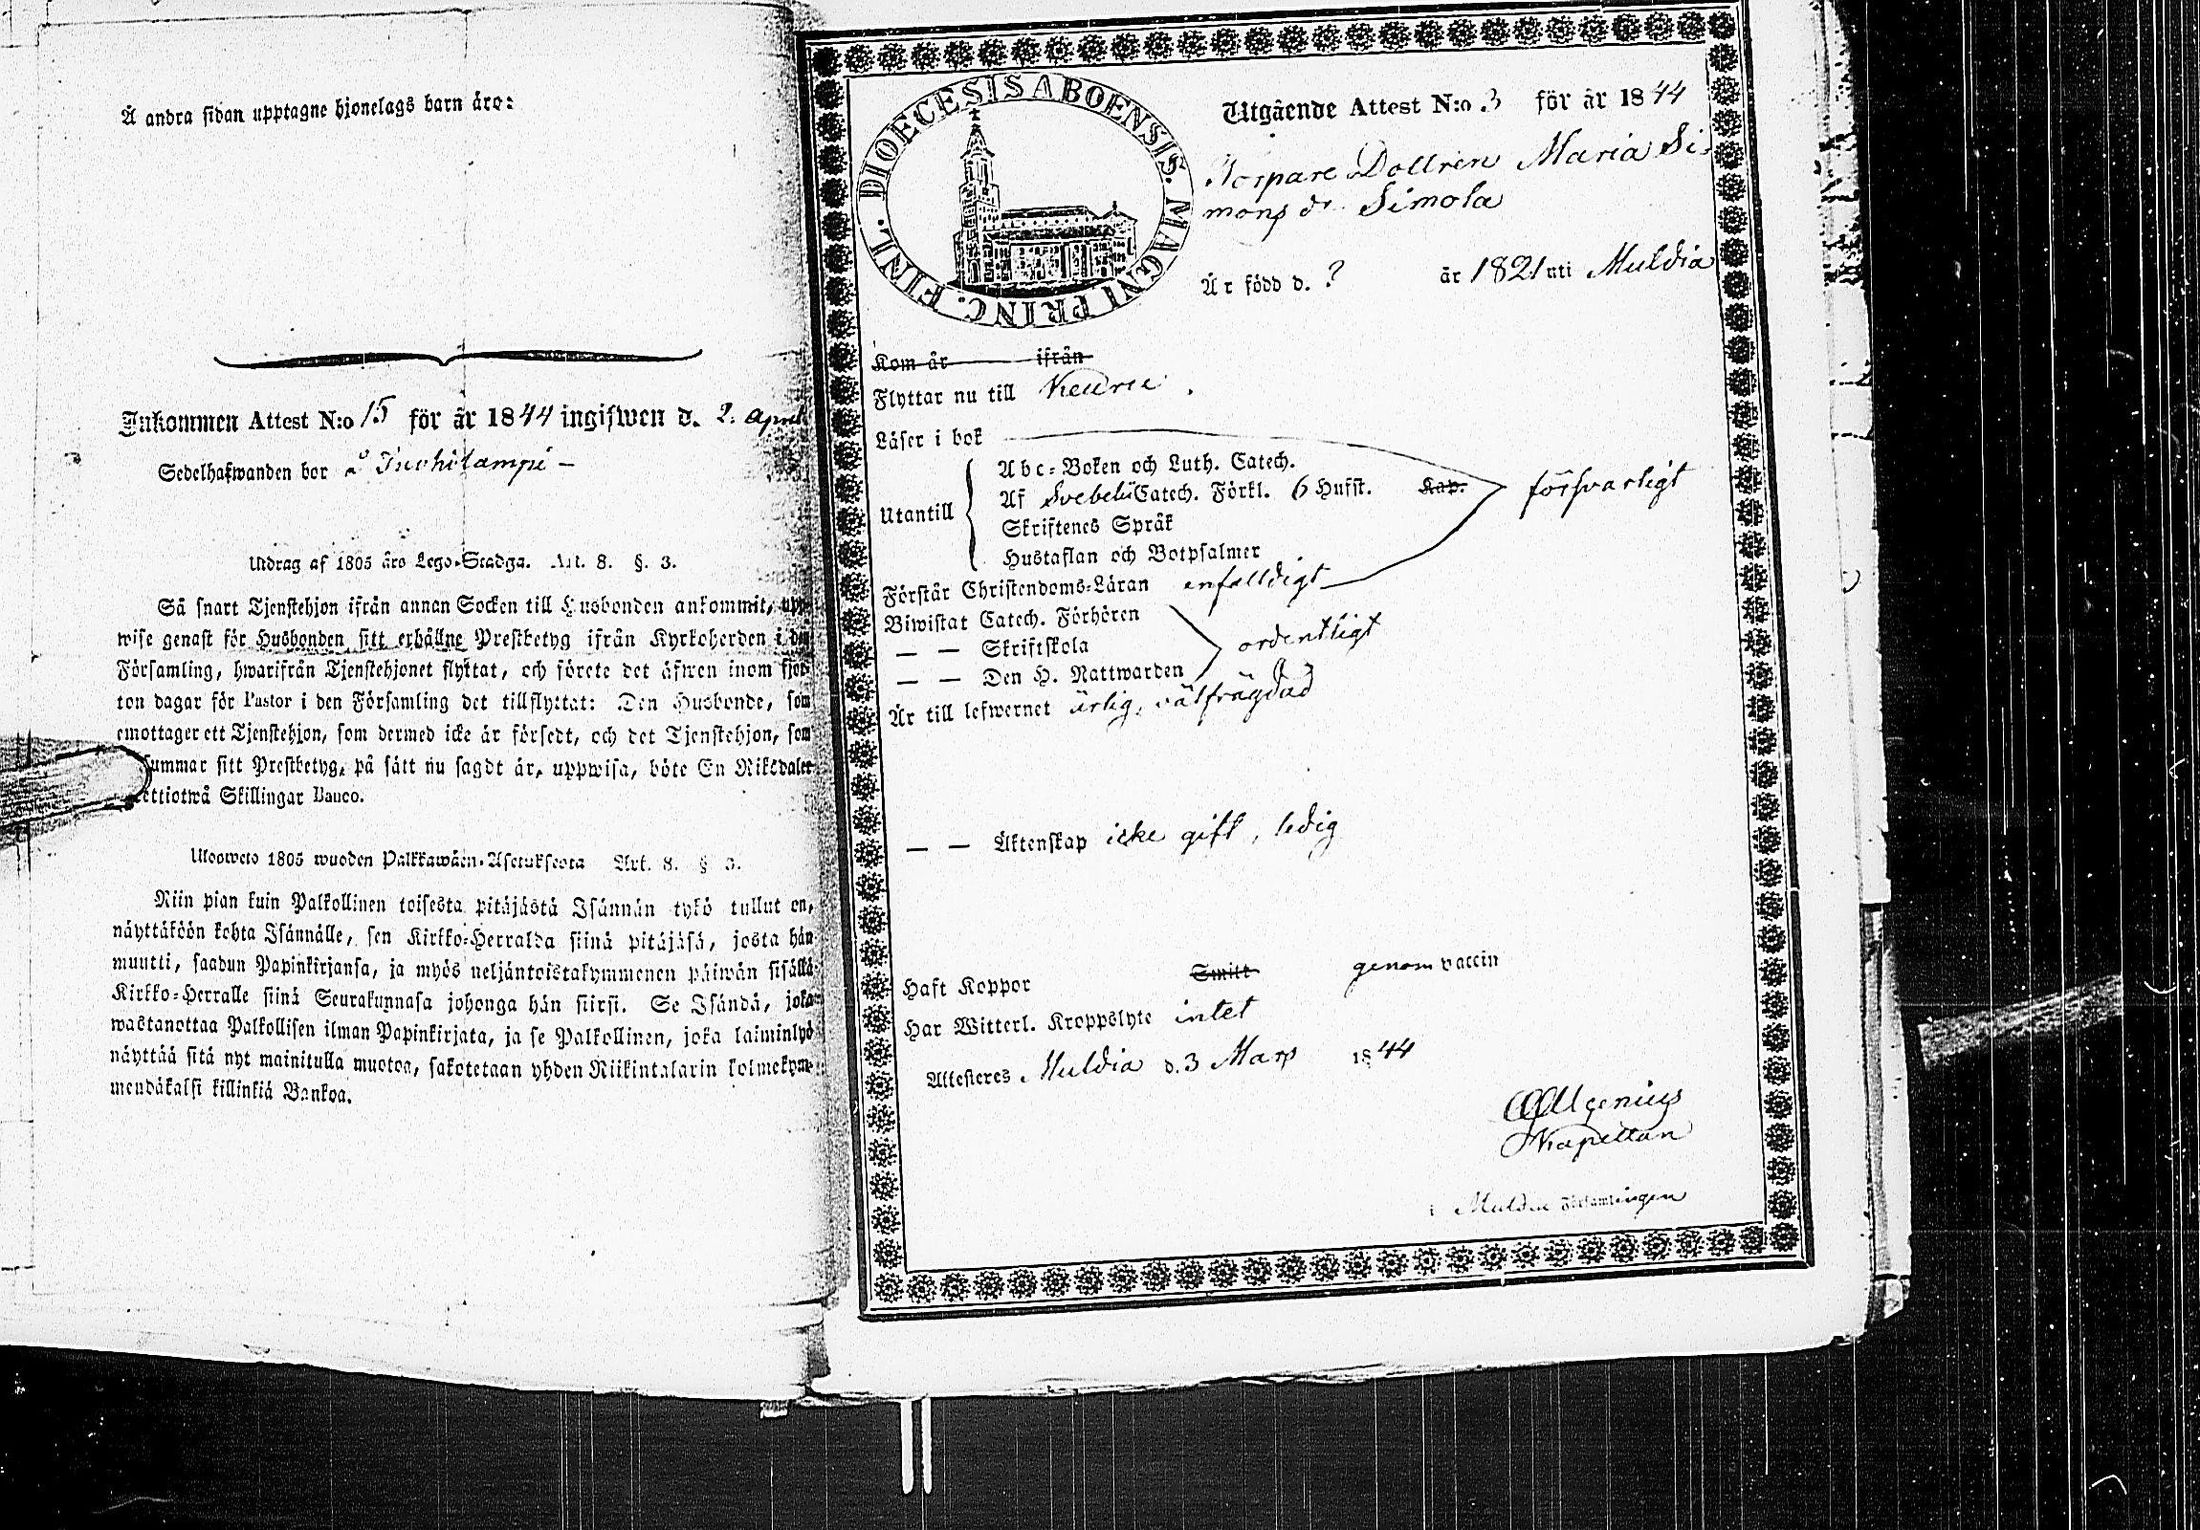 Å andra sidan upptagne hjonelags barn äro:
Inkommen Attest N:o 15 för år 1844 ingifwen d. 2. April
Sedelhafwanden bor å Tuohilampi –
Utdrag af 1805 års Lego-Stadga. Art. 8. §. 3.
Så snart Tjenstehjon ifrån annan Socken till Husbonden ankommit, upp-
wise genast för Husbonden sitt erhållne Prestbetyg ifrån Kyrkoherden i den
Församling, hwarifrån Tjenstehjonet flyttat, och förete det äfwen inom fjor-
ton dagar för Pastor i den Församling det tillflyttat: Den Husbonde, som
emottager ett Tjenstehjon, som dermed icke är försedt, och det Tjenstehjon, som
summar sitt Prestbetyg, på sätt nu sagdt är, uppwisa, böte En Riksdaler
ettiotwå Skillingar Banco.
Ulosweto 1805 wuoden Palkkawäen-Asetuksesta Art. 8. § 3.
Niin pian kuin Palkollinen toisesta pitäjästä Isännän tykö tullut on,
näyttäköön kohta Isännälle, sen Kirkko-Herralda siinä pitäjäsä, josta hän
muutti, saadun Papinkirjansa, ja myös neljäntoistakymmenen päiwän sisällä
Kirkko-Herralle siinä Seurakunnasa johonga hän siirsi. Se Isändä, joka
wastanottaa Palkollisen ilman Papinkirjata, ja se Palkollinen, joka laiminlyö
näyttää sitä nyt mainitulla muotoa, sakotetaan yhden Riikintalarin kolmekym-
mendäkaksi killinkiä Bankoa.
DIOECESIS ABOENSIS. MAGNI PRINC. FINL.
Utgående Attest N:o 3 för år 1844
Torpare Dottren Maria Si-
mons dr Simola
Är född d. ? år 1821 uti Muldia
Kom år ifrån
Flyttar nu till Keuru.
Läser i bok
Utantill
Abc-Boken och Luth. Catech.
Af Svebelii Catech. Förkl. 6 Hufst. Kap. försvarligt
Skriftenes Språk
Hustaflan och Botpsalmer
Förstår Christendoms-Läran enfalldigt
Biwistat Catech. Förhören
— — Skriftskola ordentligt
— — Den H. Nattwarden
Är till lefwernet ärlig, välfrägdad
— — Äktenskap icke gift, ledig
Haft Koppor Smitt genom vaccin
Har Witterl. Kroppslyte intet
Attesteres Muldia d. 3 Mars 1844
Kapellan
i Muldia Församlingen